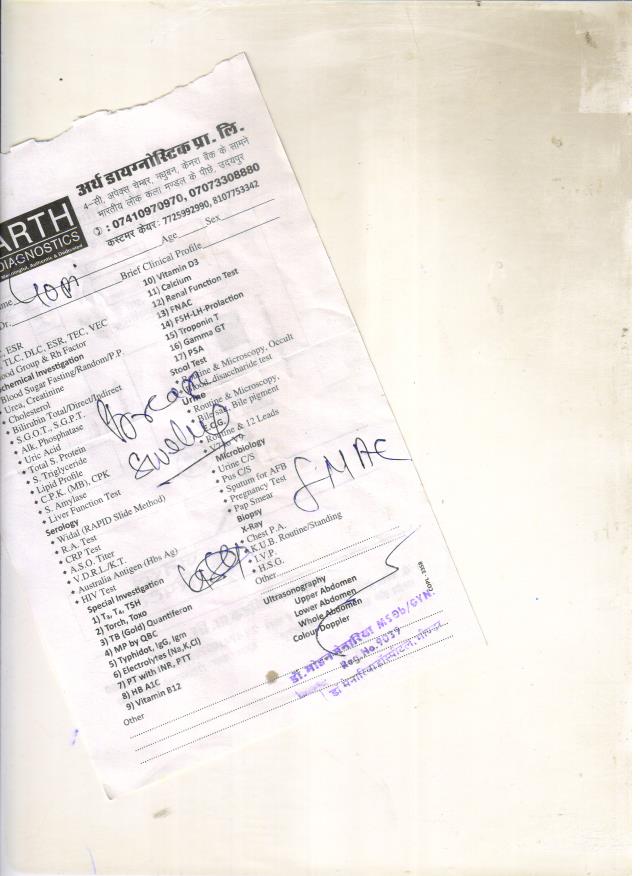 अर्थ डायग्नोस्टिक प्रा. लि.
4-सी, अपेक्स चेम्बर, मधुबन, केनरा बैंक के सामने
भारतीय लोक कला मण्डल के पीछे, उदयपुर
: 07410970970, 07073308880
कस्टमर केयर: 7725992990, 8107753342
ARTH
DIAGNOSTICS
Meaningful, Authentic & Dedicated
Age Sex
Gopi
Dr. Brief Clinical Profile
ESR
TLC, DLC, ESR, TEC, VEC
Blood Group & Rh Factor
Biochemical Investigation
Blood Sugar Fasting/Random/P.P.
• Urea, Creatinine
• Cholesterol
• Bilirubin Total/Direct/Indirect
• S.G.O.T., S.G.P.T.
• Alk. Phosphatase
• Uric Acid
• Total S. Protein
• S. Triglyceride
• Lipid Profile
• C.P.K. (MB), CPK
• S. Amylase
• Liver Function Test
Serology
• Widal (RAPID Slide Method)
• R.A. Test
• CRP Test
• A.S.O. Titer
• V.D.R.L./K.T.
• Australia Antigen (Hbs Ag)
• HIV Test
Special Investigation
1) T3, T4, TSH
2) Torch, Toxo
3) TB (Gold) Quantiferon
4) MP by QBC
5) Typhidot, IgG, Igm
6) Electrolytes (Na,K,Cl)
7) PT with INR, PTT
8) HB A1C
9) Vitamin B12
Other
10) Vitamin D3
11) Calcium
12) Renal Function Test
13) FNAC
14) FSH-LH-Prolaction
15) Troponin T
16) Gamma GT
17) PSA
Stool Test
• Routine & Microscopy, Occult
Blood, disaccharide test
Urine
• Routine & Microscopy,
Bile salt, Bile pigment
E.C.G.
• Routine & 12 Leads
Microbiology
• Urine C/S
• Pus C/S
• Sputum for AFB
• Pregnancy Test
• Pap Smear
Biopsy
X-Ray
• Chest P.A.
• K.U.B. Routine/Standing
• I.V.P.
• H.S.G.
Other
Ultrasonography
Upper Abdomen
Lower Abdomen
Whole Abdomen
Colour Doppler
swelling
Reg. No. 9037